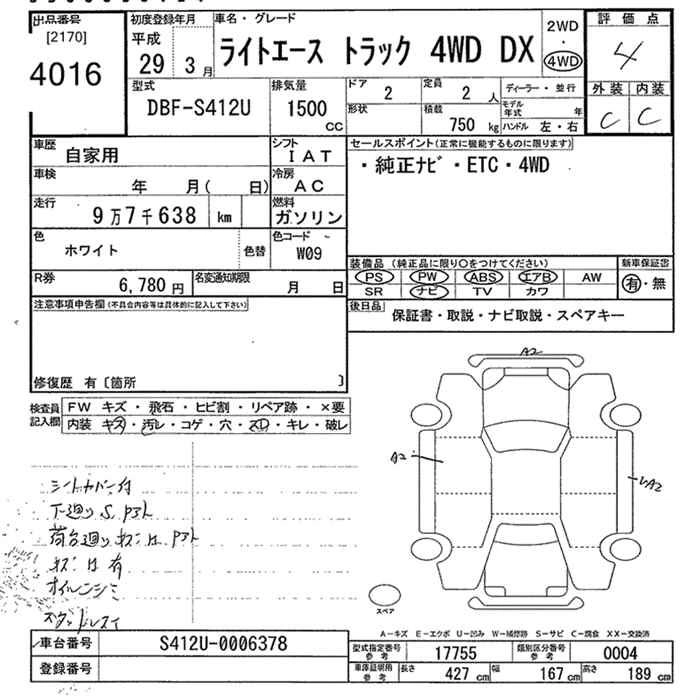 出品番号
[2170]
4016
初度登録年月
平成
29 3月
車名・グレード
ライトエース トラック 4WD DX
2WD
・
4WD
評価点
4
外装 内装
C C
型式
DBF-S412U
排気量
1500 CC
ドア
2
定員
2 人
形状
積載
750 kg
ディーラー・並行
モデル年式 年
ハンドル 左・右
車歴
自家用
シフト
IAT
車検
年 月( 日)
冷房
AC
走行
9万7千638 km
燃料
ガソリン
色
ホワイト
色替
色コード
W09
R券
6,780円
名変通知期限
月 日
セールスポイント(正常に機能するものに限ります)
・純正ﾅﾋﾞ・ETC・4WD
装備品(純正品に限り○をつけてください)
新車保証書
PS PW ABS エアB AW
SR ナビ TV カワ
有・無
後日品
保証書・取説・ナビ取説・スペアキー
注意事項申告欄(不具合内容等は具体的に記入して下さい)
修復歴 有〔箇所 〕
検査員記入欄
FW キズ・飛石・ヒビ割・リペア跡・×要
内装 キズ・汚レ・コゲ・穴・スレ・キレ・破レ
シートカバー付
下廻りS
荷台廻りキズ
キズ 有
オイルニジミ
スタッドレス
A2
A2
A2
スペア
A-キズ E-エクボ U-凹み W-補修跡 S-サビ C-腐食 XX-交換済
車台番号
S412U-0006378
登録番号
型式指定番号 参考
17755
類別区分番号 参考
0004
車庫証明用 参考
長さ 427 cm 幅 167 cm 高さ 189 cm